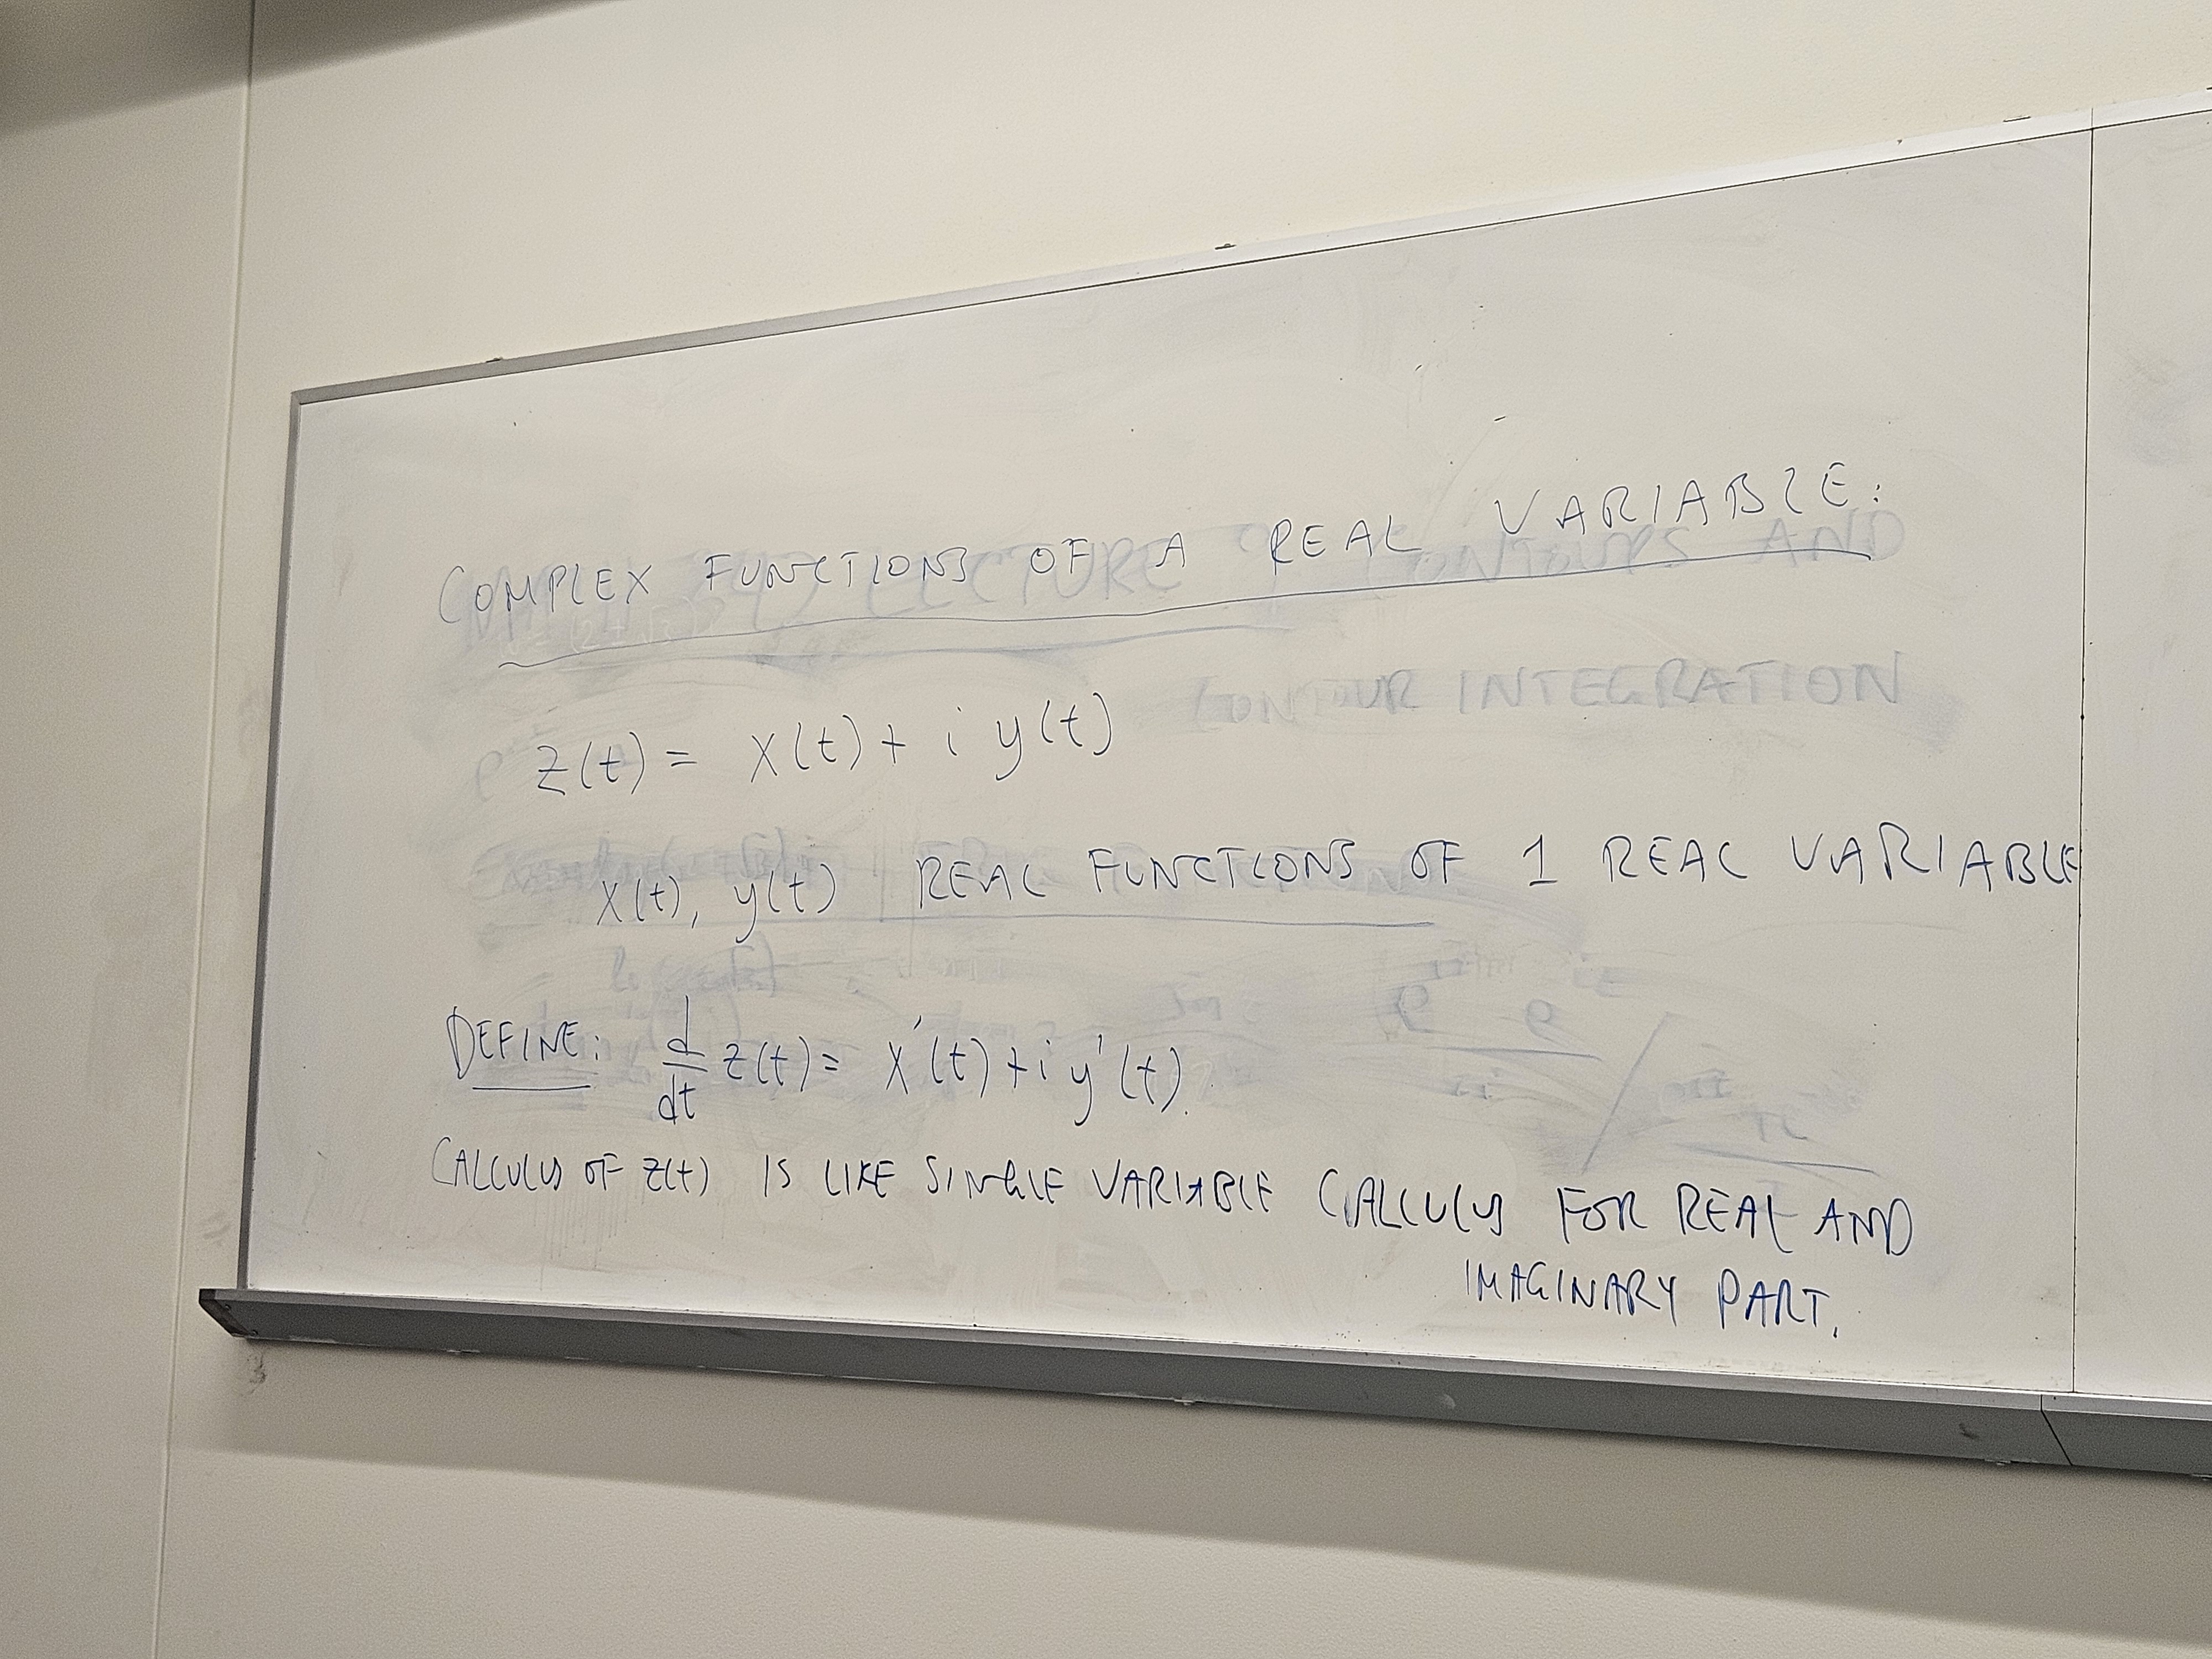 COMPLEX FUNCTIONS OF A REAL VARIABLE:
LECTURE CONTOURS AND
CONTOUR INTEGRATION
z(t) = x(t) + i y(t)
x(t), y(t) REAL FUNCTIONS OF 1 REAL VARIABLE
DEFINE: d/dt z(t) = x'(t) + i y'(t).
CALCULUS OF z(t) IS LIKE SINGLE VARIABLE CALCULUS FOR REAL AND
IMAGINARY PART.